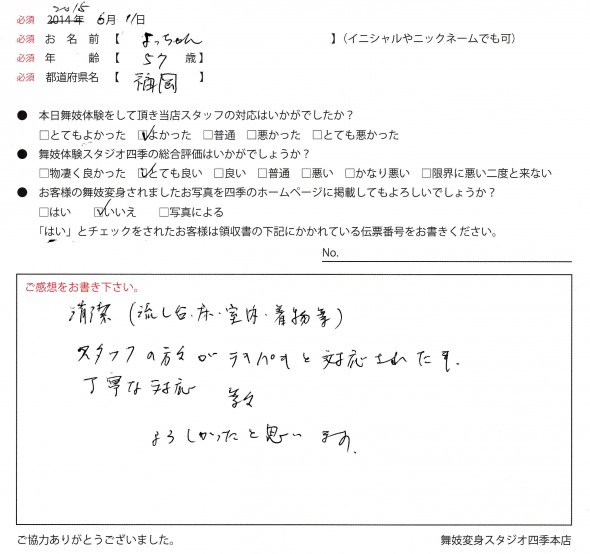 2015
必須 2014年 6月 11日
必須 お名前【 よっちゃん 】(イニシャルやニックネームでも可)
必須 年齢【 57 歳】
必須 都道府県名【 福岡 】
● 本日舞妓体験をして頂き当店スタッフの対応はいかがでしたか?
□とてもよかった ☑よかった □普通 □悪かった □とても悪かった
● 舞妓体験スタジオ四季の総合評価はいかがでしょうか?
□物凄く良かった ☑とても良い □良い □普通 □悪い □かなり悪い □限界に悪い二度と来ない
● お客様の舞妓変身されましたお写真を四季のホームページに掲載してもよろしいでしょうか?
□はい ☑いいえ □写真による
「はい」とチェックをされたお客様は領収書の下記にかかれている伝票番号をお書きください。
No.
ご感想をお書き下さい。
清潔(流し台・床・室内・着物等)
スタッフの方々がテキパキと対応された
丁寧な対応 等々
よろしかったと思います。
ご協力ありがとうございました。
舞妓変身スタジオ四季本店